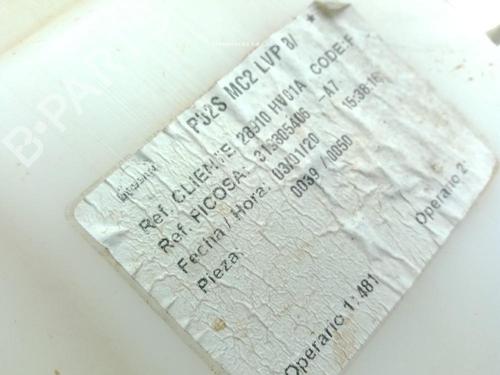 P32S MC2 LVP 8/
Ref. CLIENTE: 28910 HV01A CODE:F
Ref. FICOSA: 31S305406 -A7
Fecha / Hora: 03/01/20 15:38:16
Pieza: 0039 / 0050
Operario 1: 481 Operario 2:
B-PARTS